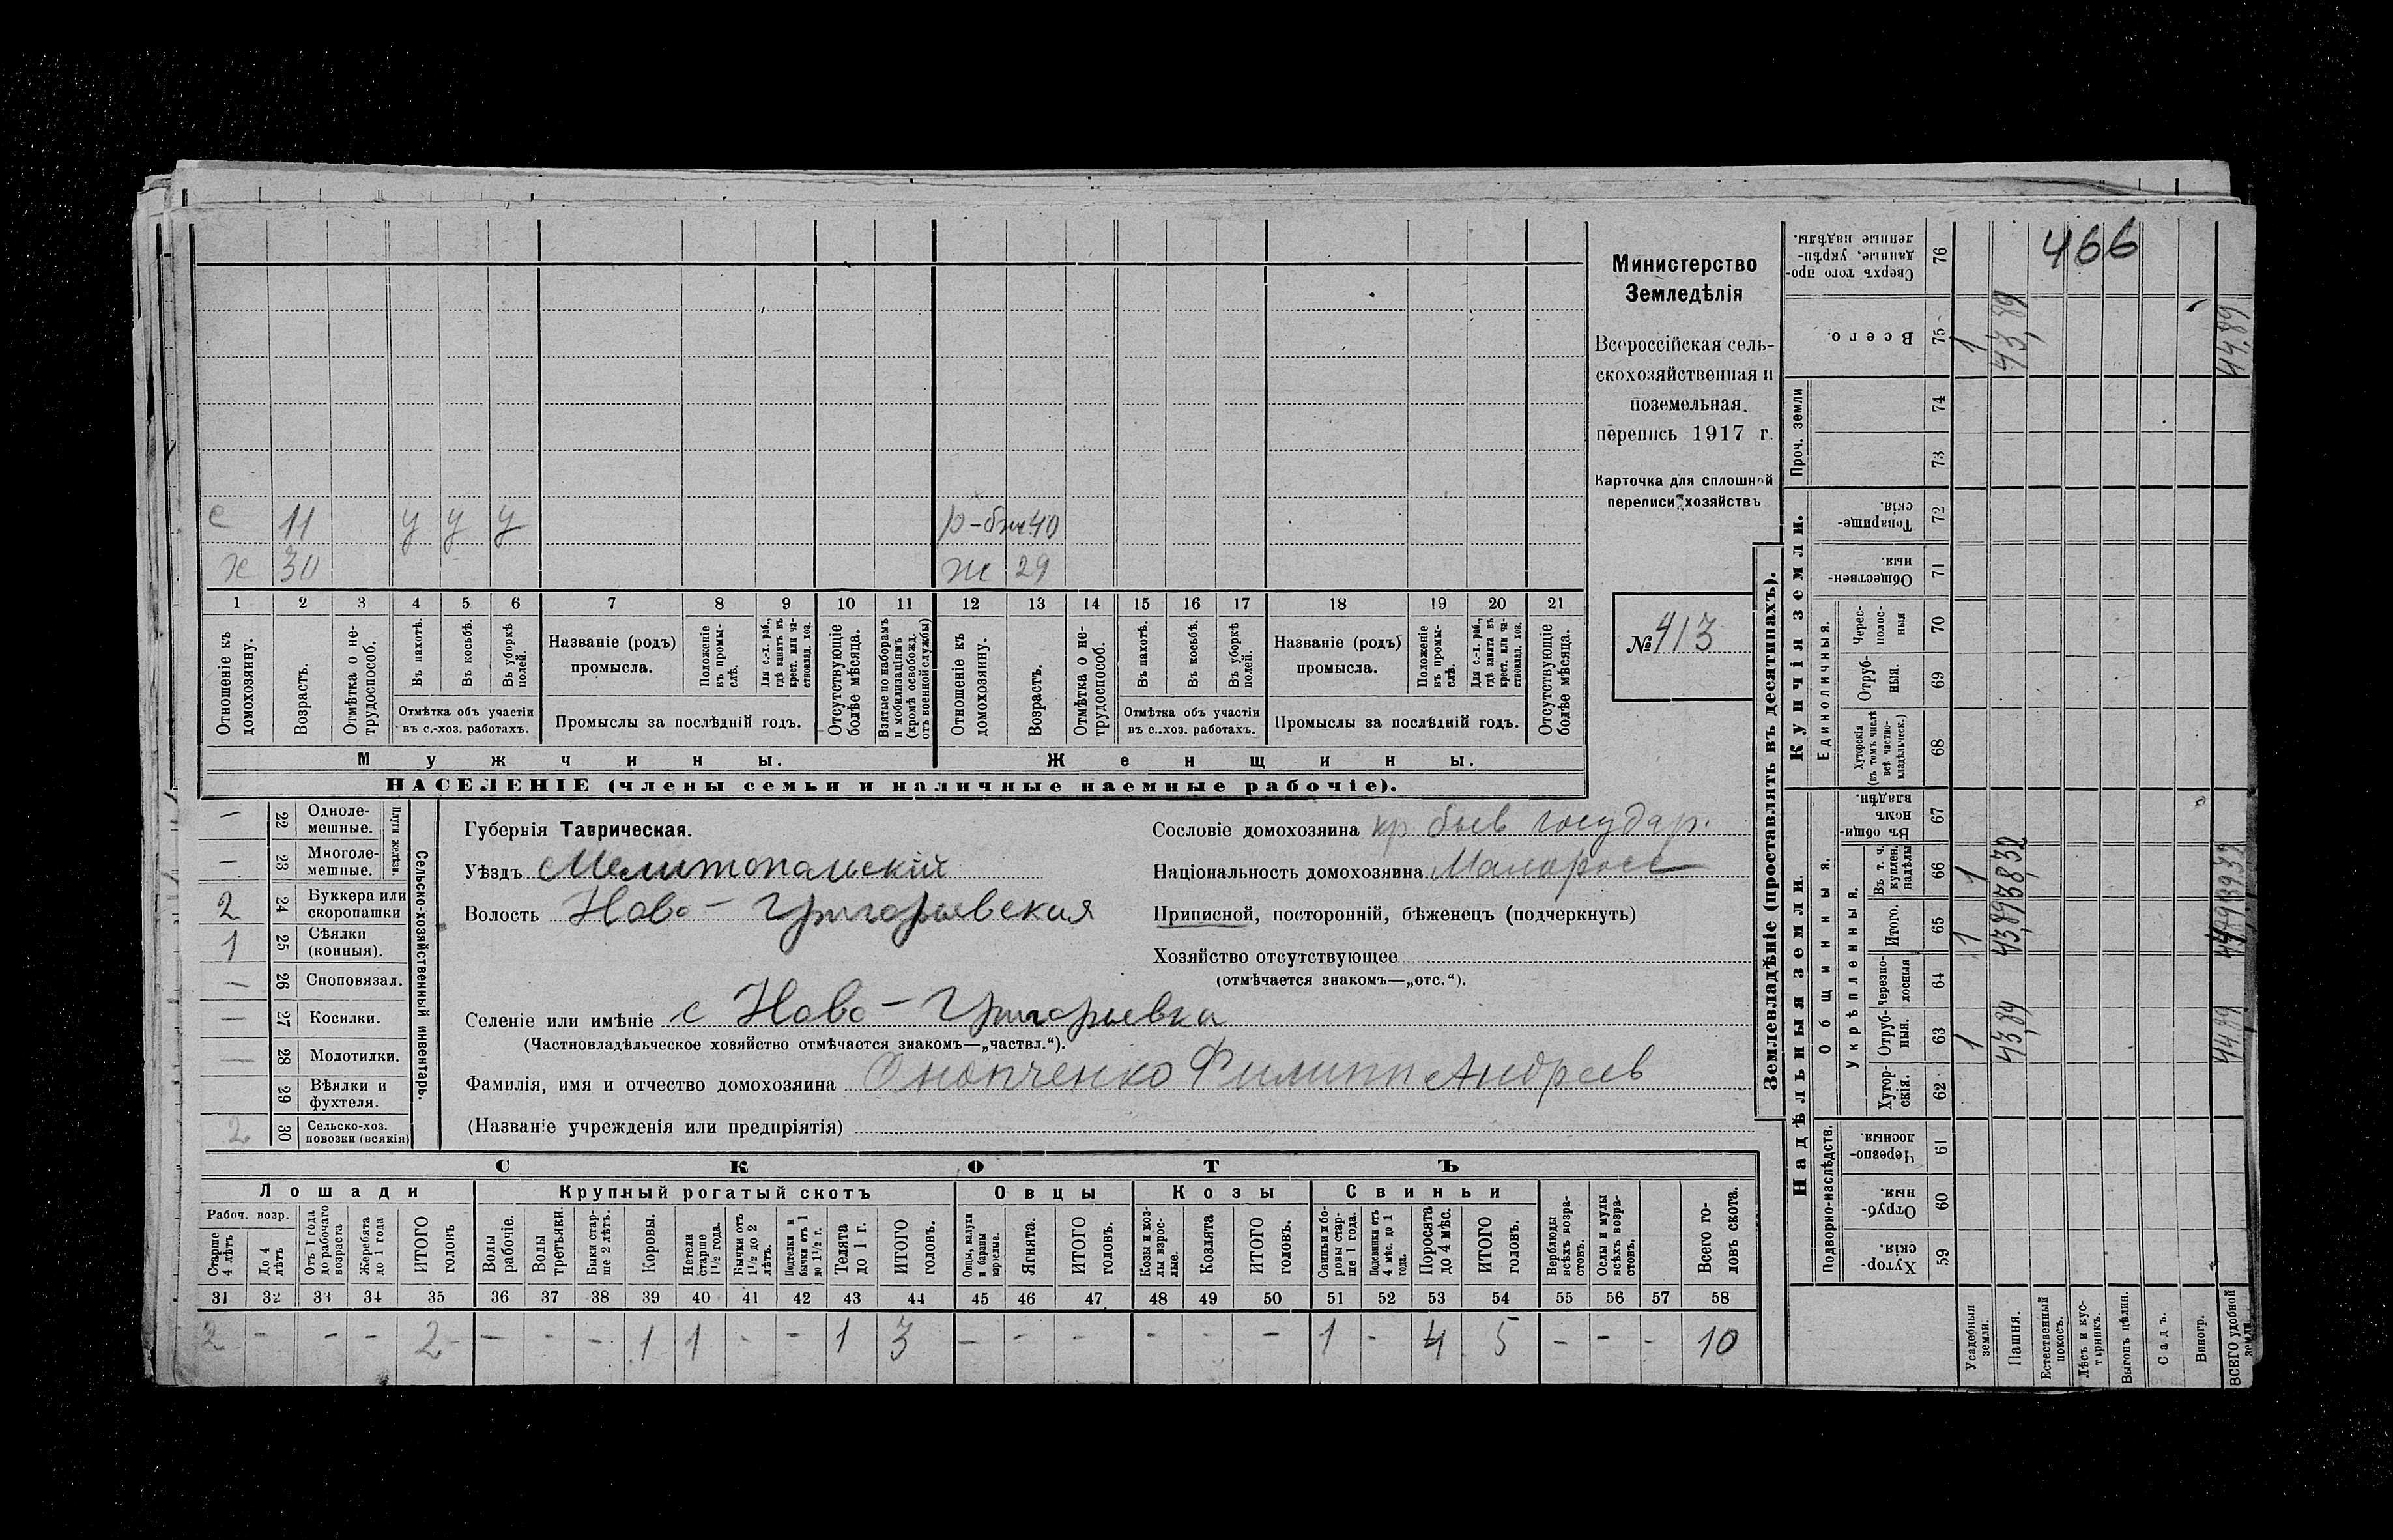 466
Министерство
Земледѣлія
Всероссійская сель-
скохозяйственная и
поземельная
перепись 1917 г.
Карточка для сплошной
переписи хозяйствъ
№ 413
с 11 у у у р-бж 40
х 30 ж 29
1 2 3 4 5 6 7 8 9 10 11 12 13 14 15 16 17 18 19 20 21
Отношеніе къ домохозяину.
Возрастъ.
Отмѣтка о не-трудоспособ.
Въ пахотѣ.
Въ косьбѣ.
Въ уборкѣ полей.
Отмѣтка объ участіи
въ с.-хоз. работахъ.
Названіе (родъ)
промысла.
Положеніе въ промы-слѣ.
Для с.-х. раб., гдѣ занятъ въ крест. или ча-стновлад. хоз.
Промыслы за послѣдній годъ.
Отсутствующіе болѣе мѣсяца.
Взятые по наборамъ и мобилизаціямъ (кромѣ освобожд. отъ военной службы)
Отношеніе къ домохозяину.
Возрастъ.
Отмѣтка о не-трудоспособ.
Въ пахотѣ.
Въ косьбѣ.
Въ уборкѣ полей.
Отмѣтка объ участіи
въ с.-хоз. работахъ.
Названіе (родъ)
промысла.
Положеніе въ промы-слѣ.
Для с.-х. раб., гдѣ занята въ крест. или ча-стновлад. хоз.
Промыслы за послѣдній годъ.
Отсутствующіе болѣе мѣсяца.
Мужчины. Женщины.
НАСЕЛЕНІЕ (члены семьи и наличные наемные рабочіе).
Сельско-хозяйственный инвентарь.
Плуги желѣзн.
— 22 Одноле-мешные.
— 23 Многоле-мешные.
2 24 Буккера или скоропашки
1 25 Сѣялки (конныя).
— 26 Сноповязал.
— 27 Косилки.
— 28 Молотилки.
29 Вѣялки и фухтеля.
2 30 Сельско-хоз. повозки (всякія)
Губернія Таврическая.
Уѣздъ Мелитопольскій
Волость Ново-Григорьевская
Сословіе домохозяина кр. быв государ.
Національность домохозяина Малоросс
Приписной, посторонній, бѣженецъ (подчеркнуть)
Хозяйство отсутствующее
(отмѣчается знакомъ—„отс.“).
Селеніе или имѣніе с Ново-Григорьевка
(Частновладѣльческое хозяйство отмѣчается знакомъ—„частвл.“).
Фамилія, имя и отчество домохозяина Онопченко Филипп Андреев
(Названіе учрежденія или предпріятія)
СКОТЪ
Лошади Крупный рогатый скотъ Овцы Козы Свиньи
Рабоч. возр.
Старше 4 лѣтъ
До 4 лѣтъ
Отъ 1 года до рабочаго возраста
Жеребята до 1 года
ИТОГО головъ
Волы рабочіе.
Волы третьяки.
Быки стар-ше 2 лѣтъ.
Коровы.
Нетели старше 1½ года.
Бычки отъ 1½ до 2 лѣтъ.
Подтелки и бычки отъ 1 до 1½ г.
Телята до 1 г.
ИТОГО головъ.
Овцы, валухи и бараны взрослые.
Ягнята.
ИТОГО головъ.
Козы и коз-лы взрос-лые.
Козлята
ИТОГО головъ.
Свиньи и бо-ровы стар-ше 1 года.
Подсвинки отъ 4 мѣс. до 1 года.
Поросята до 4 мѣс.
ИТОГО головъ.
Верблюды всѣхъ возра-стовъ.
Ослы и мулы всѣхъ возра-стовъ.
Всего го-ловъ скота.
31 32 33 34 35 36 37 38 39 40 41 42 43 44 45 46 47 48 49 50 51 52 53 54 55 56 57 58
2 - - - 2 - - - 1 1 - - 1 3 - - - - - - 1 - 4 5 - - - 10
Землевладѣніе (проставлять въ десятинахъ).
Сверхъ того про-данные, укрѣп-ленные надѣлы. 76
Всего. 75 1 43,89 44,89
Проч. земли
74
73
Купчія земли.
Товарище-скія. 72
Обществен-ныя. 71
Единоличныя.
Черес-полос-ныя 70
Отруб-ныя. 69
Хуторскія (въ томъ числѣ всѣ частно-владѣльческ.) 68
Надѣльныя земли.
Общинныя.
Въ общин-номъ владѣн. 67
Укрѣпленныя.
Въ т. ч. куплен. надѣлы 66 1 38,32 39,32
Итого. 65 1 43,89
Черезпо-лосныя 64
Отруб-ныя. 63 1 43,89 44,89
Хутор-скія. 62
Подворно-наслѣдств.
Черезпо-лосныя. 61
Отруб-ныя. 60
Хутор-скія. 59
Усадебныя земли.
Пашня.
Естественный покосъ.
Лѣсъ и кус-тарникъ.
Выгонъ цѣлин.
Садъ.
Виногр.
ВСЕГО удобной земли.